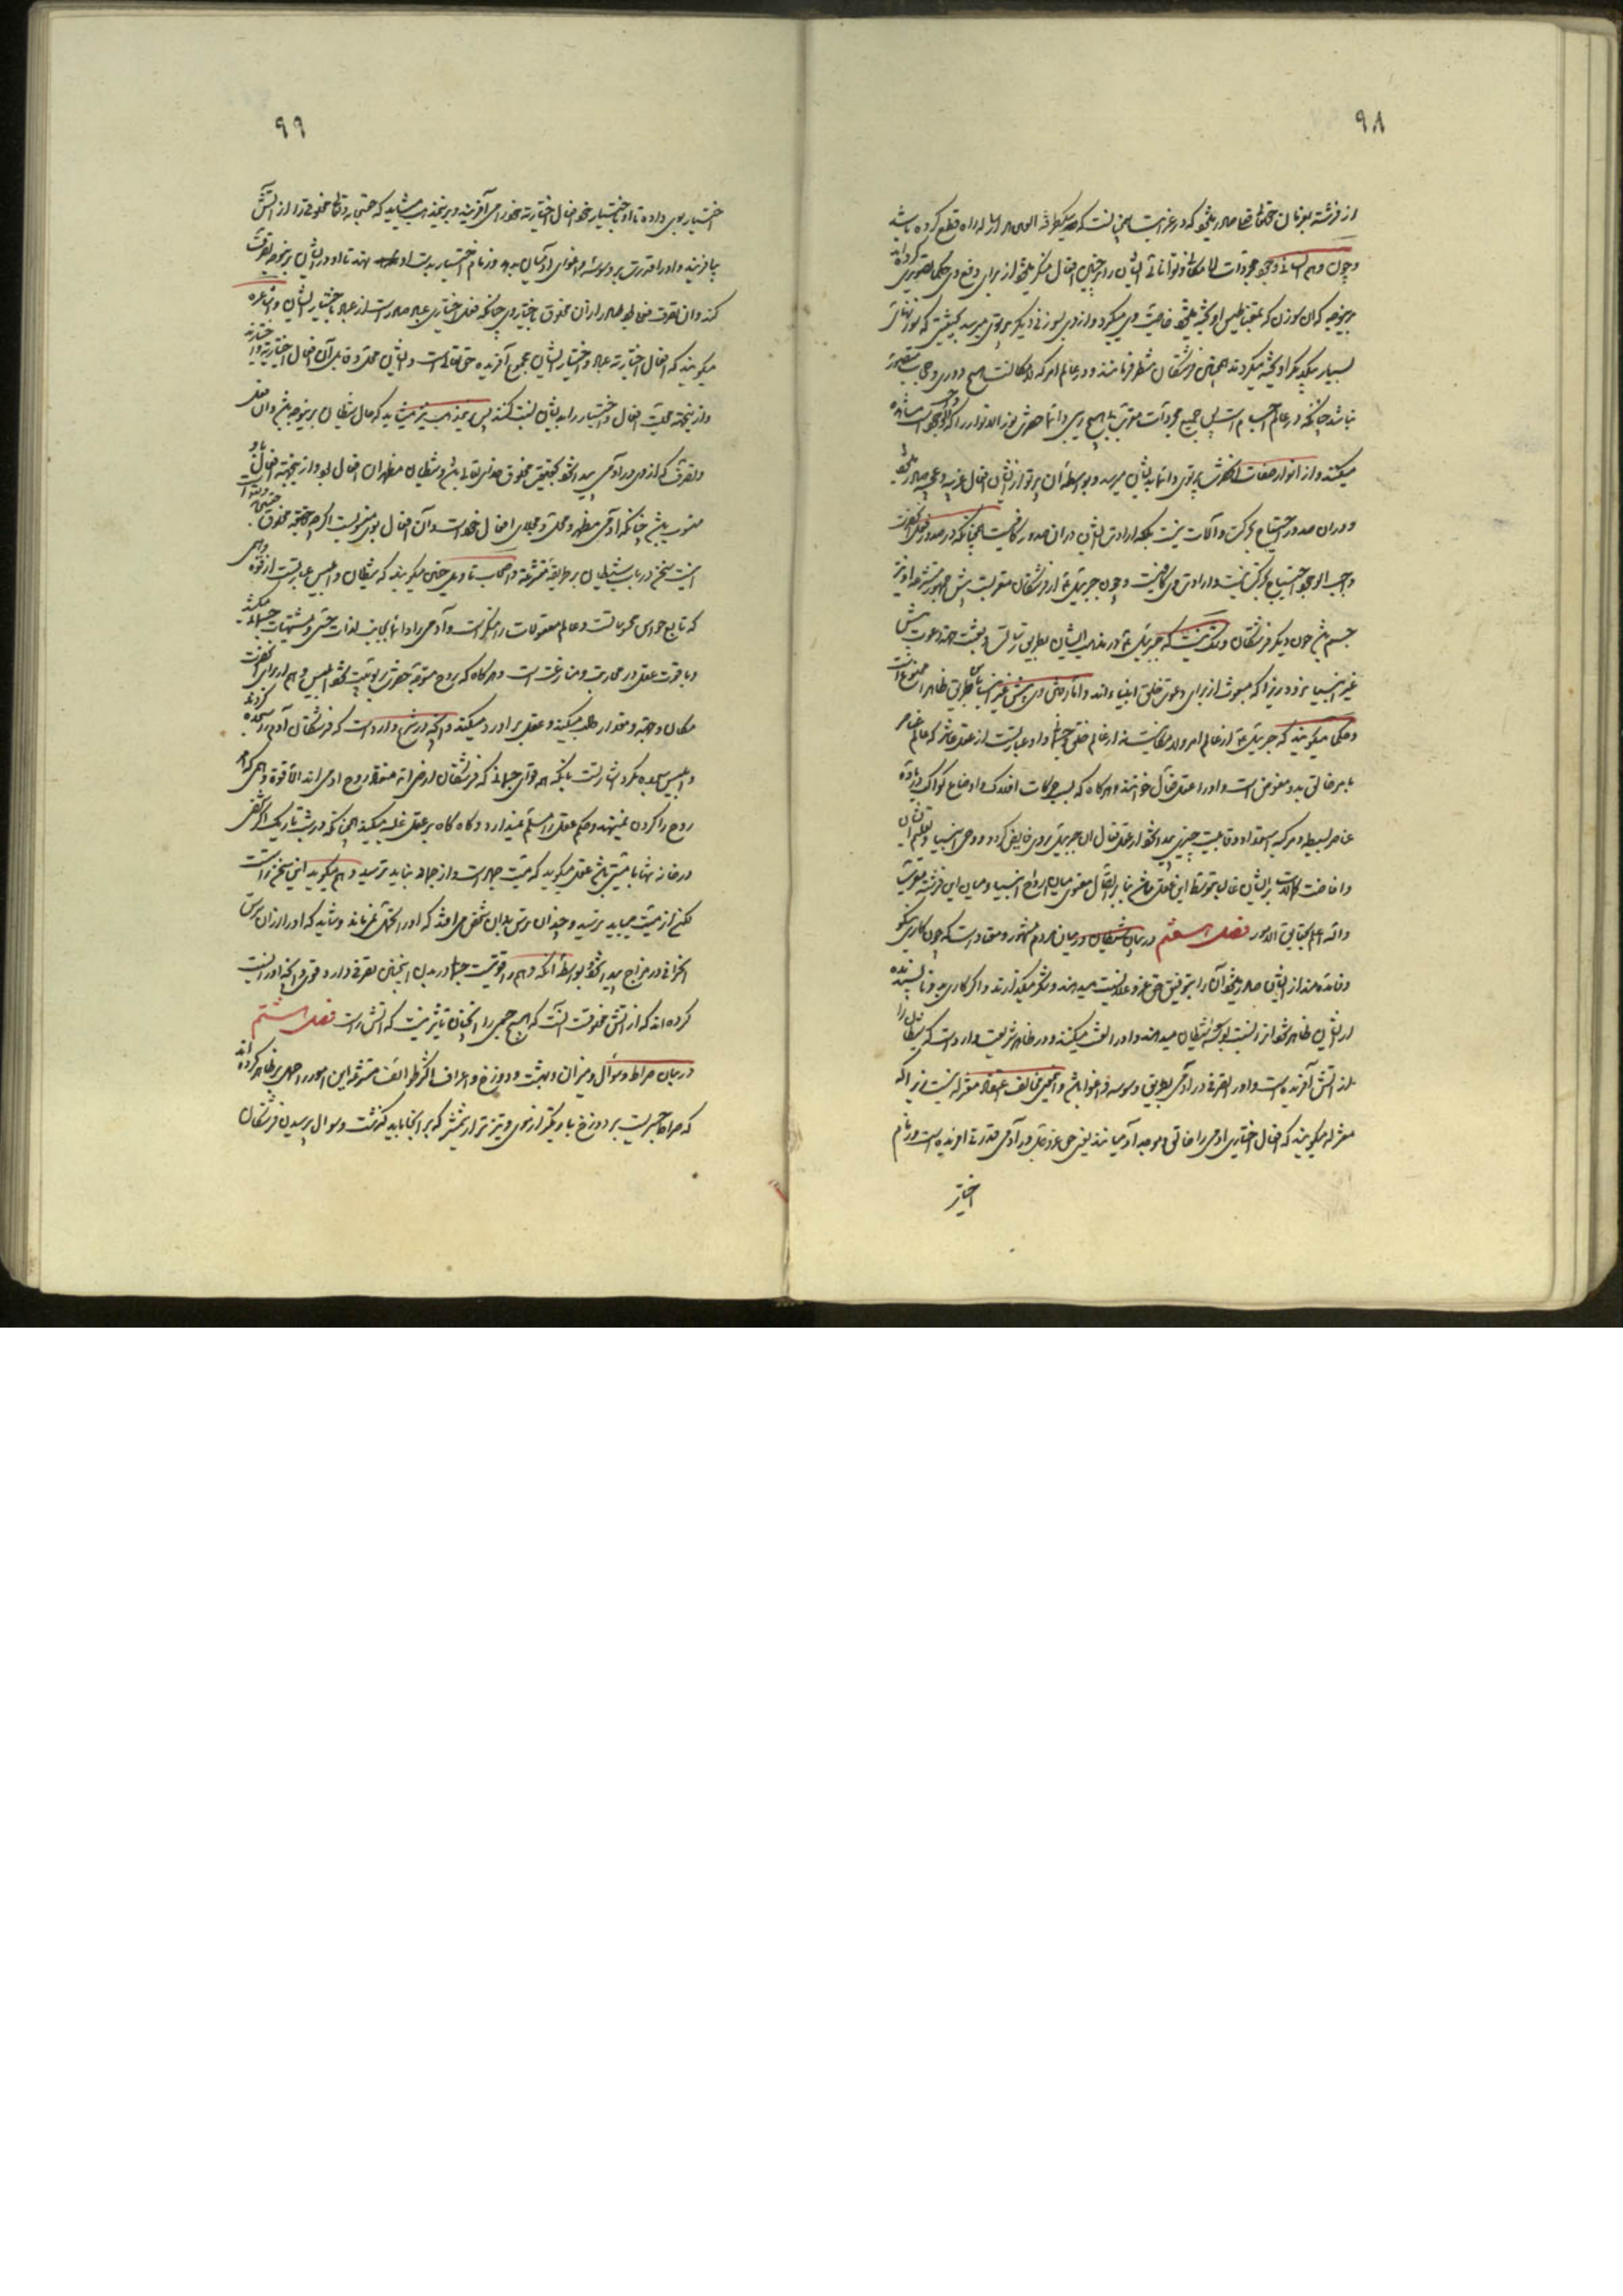 ۹۸
از فرشته بفرمان حقتعالی صادر میشود که در غرابت
و چون وهم انسانی وجود مجردات لامکانی و توانائی ایشان را بر چنین افعال منکر میشود از برای دفع وی حکما تصویری کرده‌اند
برینوجه که ان سوزن که بمقناطیس اویخته میشود خاصیت وی میگیرد و از وی بسوزنی دیگر پرتوی میرسد بحیثیتی که سوزنهای
بسیار بیکدیگر اویخته میگردند همچنین فرشتگان منتظر فرمانند و در عالم امر که لامکانست هیچ دوری و حجاب متصور
نباشد چنانکه در عالم اجسام است پس جمیع مجردات مقرب بی هیچ دوری دائما حضرت نور الانوار را که واجب الوجود است مشاهده
میکنند و از انوار صفات حضرتش پرتوی دائما بدیشان میرسد و بواسطه ان پرتو از ایشان افعال غریبه و عجیبه صادر میشود
و در ان صدور احتیاج بحرکت و آلات نیست بلکه ارادت ایشان در ان صدور کافیست همچنانکه در صدور فعل از حضرت
واجب الوجود احتیاج بحرکت نیست و ارادت وی کافیست و چون جبرئیل ع از فرشتگان مقربست پیش جمهور متشرعه او نیز
جسم باشد چون دیگر فرشتگان و شک نیست که جبرئیل ع در مذهب ایشان بطریق رسالت و بعثت جهت دعوت پیش
غیر انبیا نرود زیرا که مبعوث از برای دعوت خلق انبیاءاند و اما رفتن وی پیش غیر انبیا نه بطریق ظاهر ممنوع نیست
و حکما میگویند که جبرئیل ع از عالم امر و لامکانیست نه از عالم خلق و جسمانی و او عبارتست از عقل عاشر که عالم عناصر
بامر خالق بدو مفوض است و او را عقل فعال خوانند هرگاه که بسبب حرکات افلاک و اوضاع کواکب در ماده
عناصر بسیطه و مرکبه استعداد و قابلیت چیزی پیدا شود از عقل فعال ان جبرئیل بروی فایض گردد و وحی انبیا و تعلیم ایشان
و افاضت کمالات بر ایشان غالبا بتوسط این عقل باشد بنا بر اتصال معنوی میان ارواح انبیا و میان این فرشته
والله اعلم بحقایق الامور فصل هفتم در بیان شیطان در میان مردم مشهور و معتاد است که چون کاری نیکو
و فائده‌مند از ایشان صادر میشود آنرا بتوفیق حق عز و علا نسبت میدهند و شکر میگذارند و اگر کاری بد و ناپسندیده
از ایشان ظاهر شود انرا نسبت بوسوسه شیطان میدهند و او را لعنت میکنند و در ظاهر شریعت وارد است که شیطان را
از آتش آفریده است و او را تصرفی در آدمی بطریق وسوسه و اغوا باشد و این مخالف اعتقاد معتزله نیست زیرا که
معتزله میگویند که افعال اختیاری ادمی را خالق و موجد آدمیانند یعنی حق عز و جل در آدمی قدرتی آفریده است و زمام
اختیار
۹۹
اختیار بوی داده تا او باختیار خود افعال اختیاریه خود را می‌آفریند و برین مذهب میشاید که حق تعالی مخلوقی را از آتش
بیافریند و او را قدرت بر وسوسه و اغوای آدمیان بدهد و زمام اختیار بدست او نهد تا او در ایشان برینوجه تصرفات
کند و ان تصرفات من الباطل صادر از ان مخلوق باختیار وی چنانکه فعل اختیاری عباد صادر است از عباد باختیار ایشان و اشاعره
میگویند که افعال اختیاریه عباد و اختیار ایشان مجموع آفریده حق تعالی است و ایشان محل و قابل آن افعال اختیاریه و اختیارند
و از اینجهت محلیت افعال و اختیار را بدیشان نسبت کنند پس برین مذهب نیز میشاید که حال شیطان برینوجه باشد و ان فعل
و تصرف که از وی در آدمی پیدا شود بحقیقت مخلوق خدای تعالی باشد و شیطان مظهر ان افعال بود و از اینجهت افعال باو
منسوب باشد چنانکه آدمی مظهر و محل و مجلای افعال خود است و آن افعال بوی منسوبست اگرچه حقیقة مخلوق حق تعالی است
اینست سخن در باب شیطان بر طریقه متشرعه و اصحاب تاویل چنین میگویند که شیطان و ابلیس عبارتست از قوه وهمی
که تابع حواس محسوساتست و عالم معقولات را منکر است و آدمی را دائما بجانب لذات حسی و مشتهیات جسمانی میکشد
و با قوت عقلی در محاربت و منازعت است و هرگاه که روح متوجه حضرت ربوبیت شود ابلیس وهم از برای آن حضرت
مکان و جهة و مقدار طلب میکند و عقل بر او رد میکند و آنچه در شرع وارد است که فرشتگان آدم را سجده کردند
و ابلیس سجده نکرد اشارتست بانکه همه قوای جسمانی که فرشتگان ارضی‌اند منقاد روح آدمی‌اند الا قوه وهمی که سر
روح را گردن نمینهد و حکم عقل را مسلم نمیدارد و گاه گاه بر عقل غلبه میکند همچنانکه در شب تاریک اگر شخصی
در خانه تنها با میتی باشد عقل میگوید که میت جماد است و از جماد نباید ترسید وهم میگوید این سخن راست
لکن از میت میباید ترسید و چندان ترس بدان شخص می‌افتد که او را تحمل نمیماند و شاید که او را از ان ترس
انحرافی در مزاج پیدا شود بواسطه آنکه وهم را قوتیست جسمانی در بدن اینچنین تصرفی دارد و قوی و آنچه او را نسبت
کرده‌اند که از آتش مخلوقست آنست که هیچ جسمی را انچنان تاثیر نیست که آتش راست فصل هشتم
در بیان صراط و سؤال و میزان و بهشت و دوزخ و اعراف اکثر طوائف متشرعه این امور را حمل بر ظاهر کرده‌اند
که صراط جسریست بر دوزخ باریکتر از موی و تیزتر از شمشیر که بر انجا باید گذشت و سوال پرسیدن فرشتگان